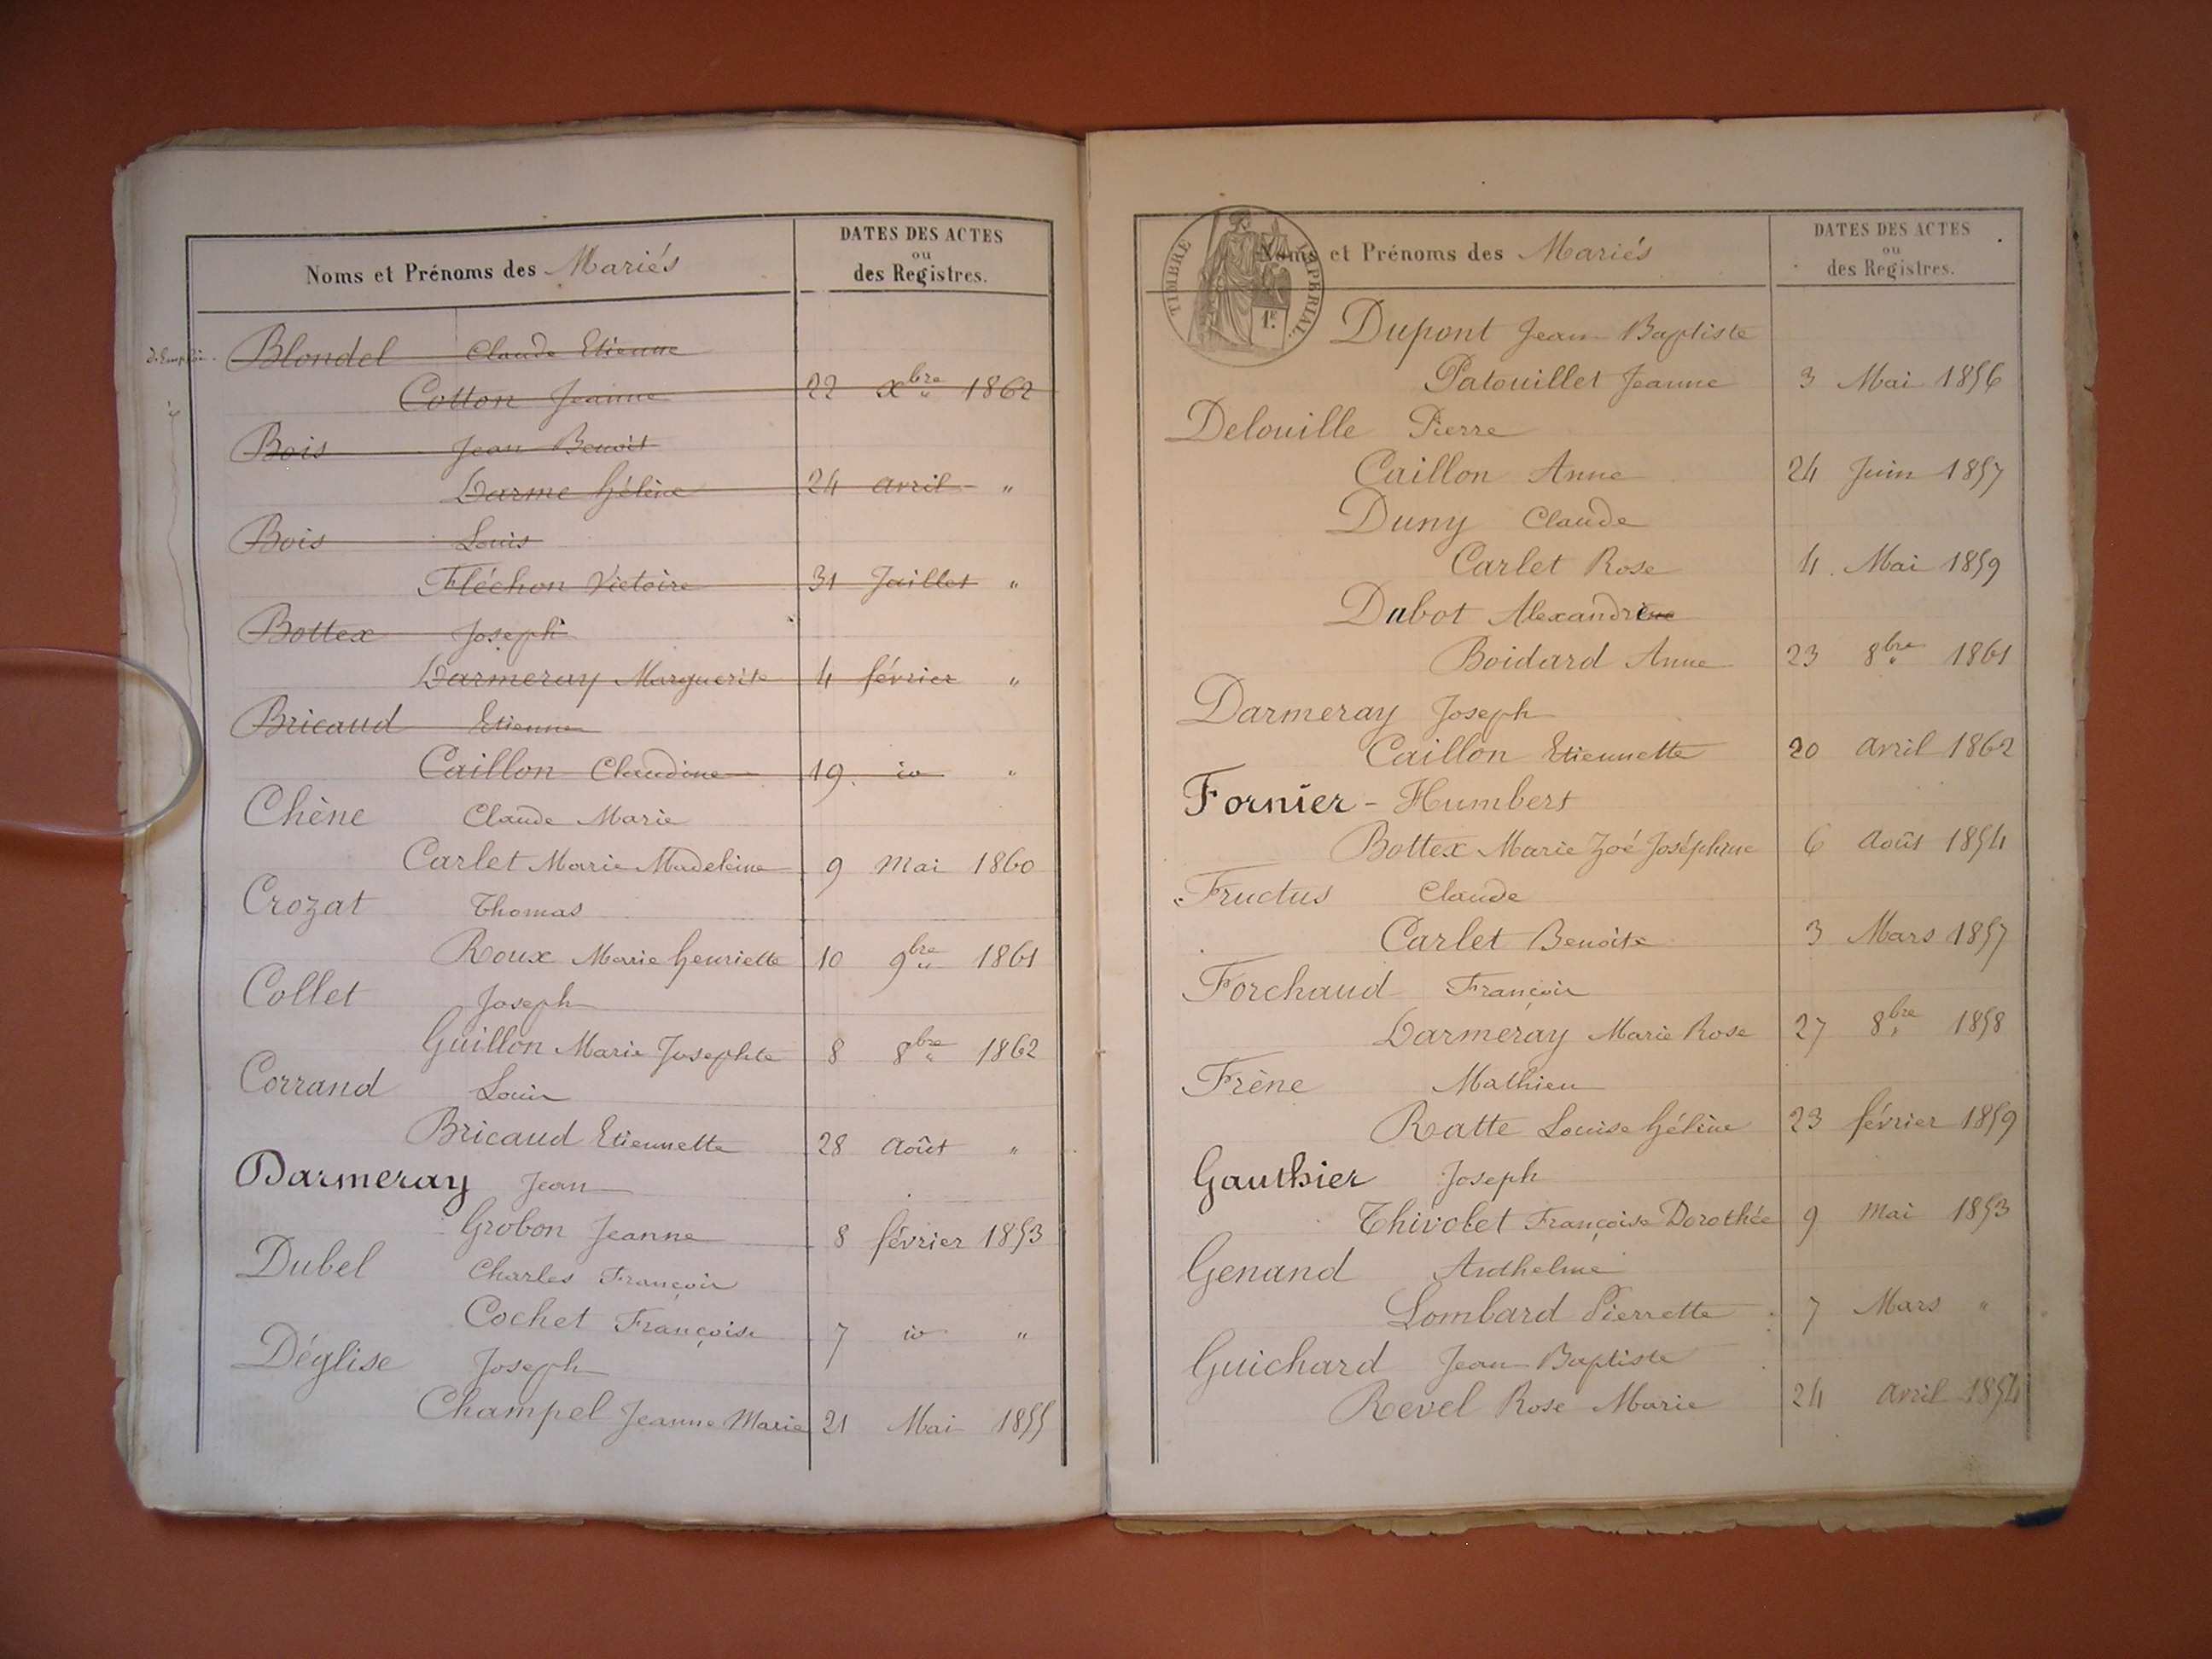 Noms et Prénoms des Mariés
DATES DES ACTES
ou
des Registres.
Blondel Claude Etienne
Cotton Jeanne 22 xbre 1862
Bois Jean Benoit
Darme hélène 24 avril "
Bois Louis
Fléchon Victoire 31 Juillet "
Bottex Joseph
Darmeray Marguerite 4 février "
Bricaud Etienne
Caillon Claudine 19 id "
Chêne Claude Marie
Carlet Marie Madeleine 9 Mai 1860
Crozat Thomas
Roux Marie henriette 10 9bre 1861
Collet Joseph
Guillon Marie Josephte 8 8bre 1862
Corrand Louis
Bricaud Etiennette 28 août "
Darmeray Jean
Grobon Jeanne 8 février 1853
Dubel Charles François
Cochet Françoise 7 id "
Déglise Joseph
Champel Jeanne Marie 21 Mai 1855
TIMBRE IMPERIAL.
1F.
Noms et Prénoms des Mariés
DATES DES ACTES
ou
des Registres.
Dupont Jean Baptiste
Patouillet Jeanne 3 Mai 1856
Delouille Pierre
Caillon Anne 24 Juin 1857
Duny Claude
Carlet Rose 4 Mai 1859
Dubot Alexandre
Boidard Anne 23 8bre 1861
Darmeray Joseph
Caillon Etiennette 20 avril 1862
Fornier - Humbert
Bottex Marie Zoé Joséphine 6 août 1854
Fructus Claude
Carlet Benoite 3 Mars 1857
Forchaud François
Darmeray Marie Rose 27 8bre 1858
Frène Mathieu
Ratte Louise hélène 23 février 1859
Gauthier Joseph
Thivolet Françoise Dorothée 9 mai 1853
Genand Anthelme
Lombard Pierrette 7 Mars "
Guichard Jean Baptiste
Revel Rose Marie 24 avril 1854